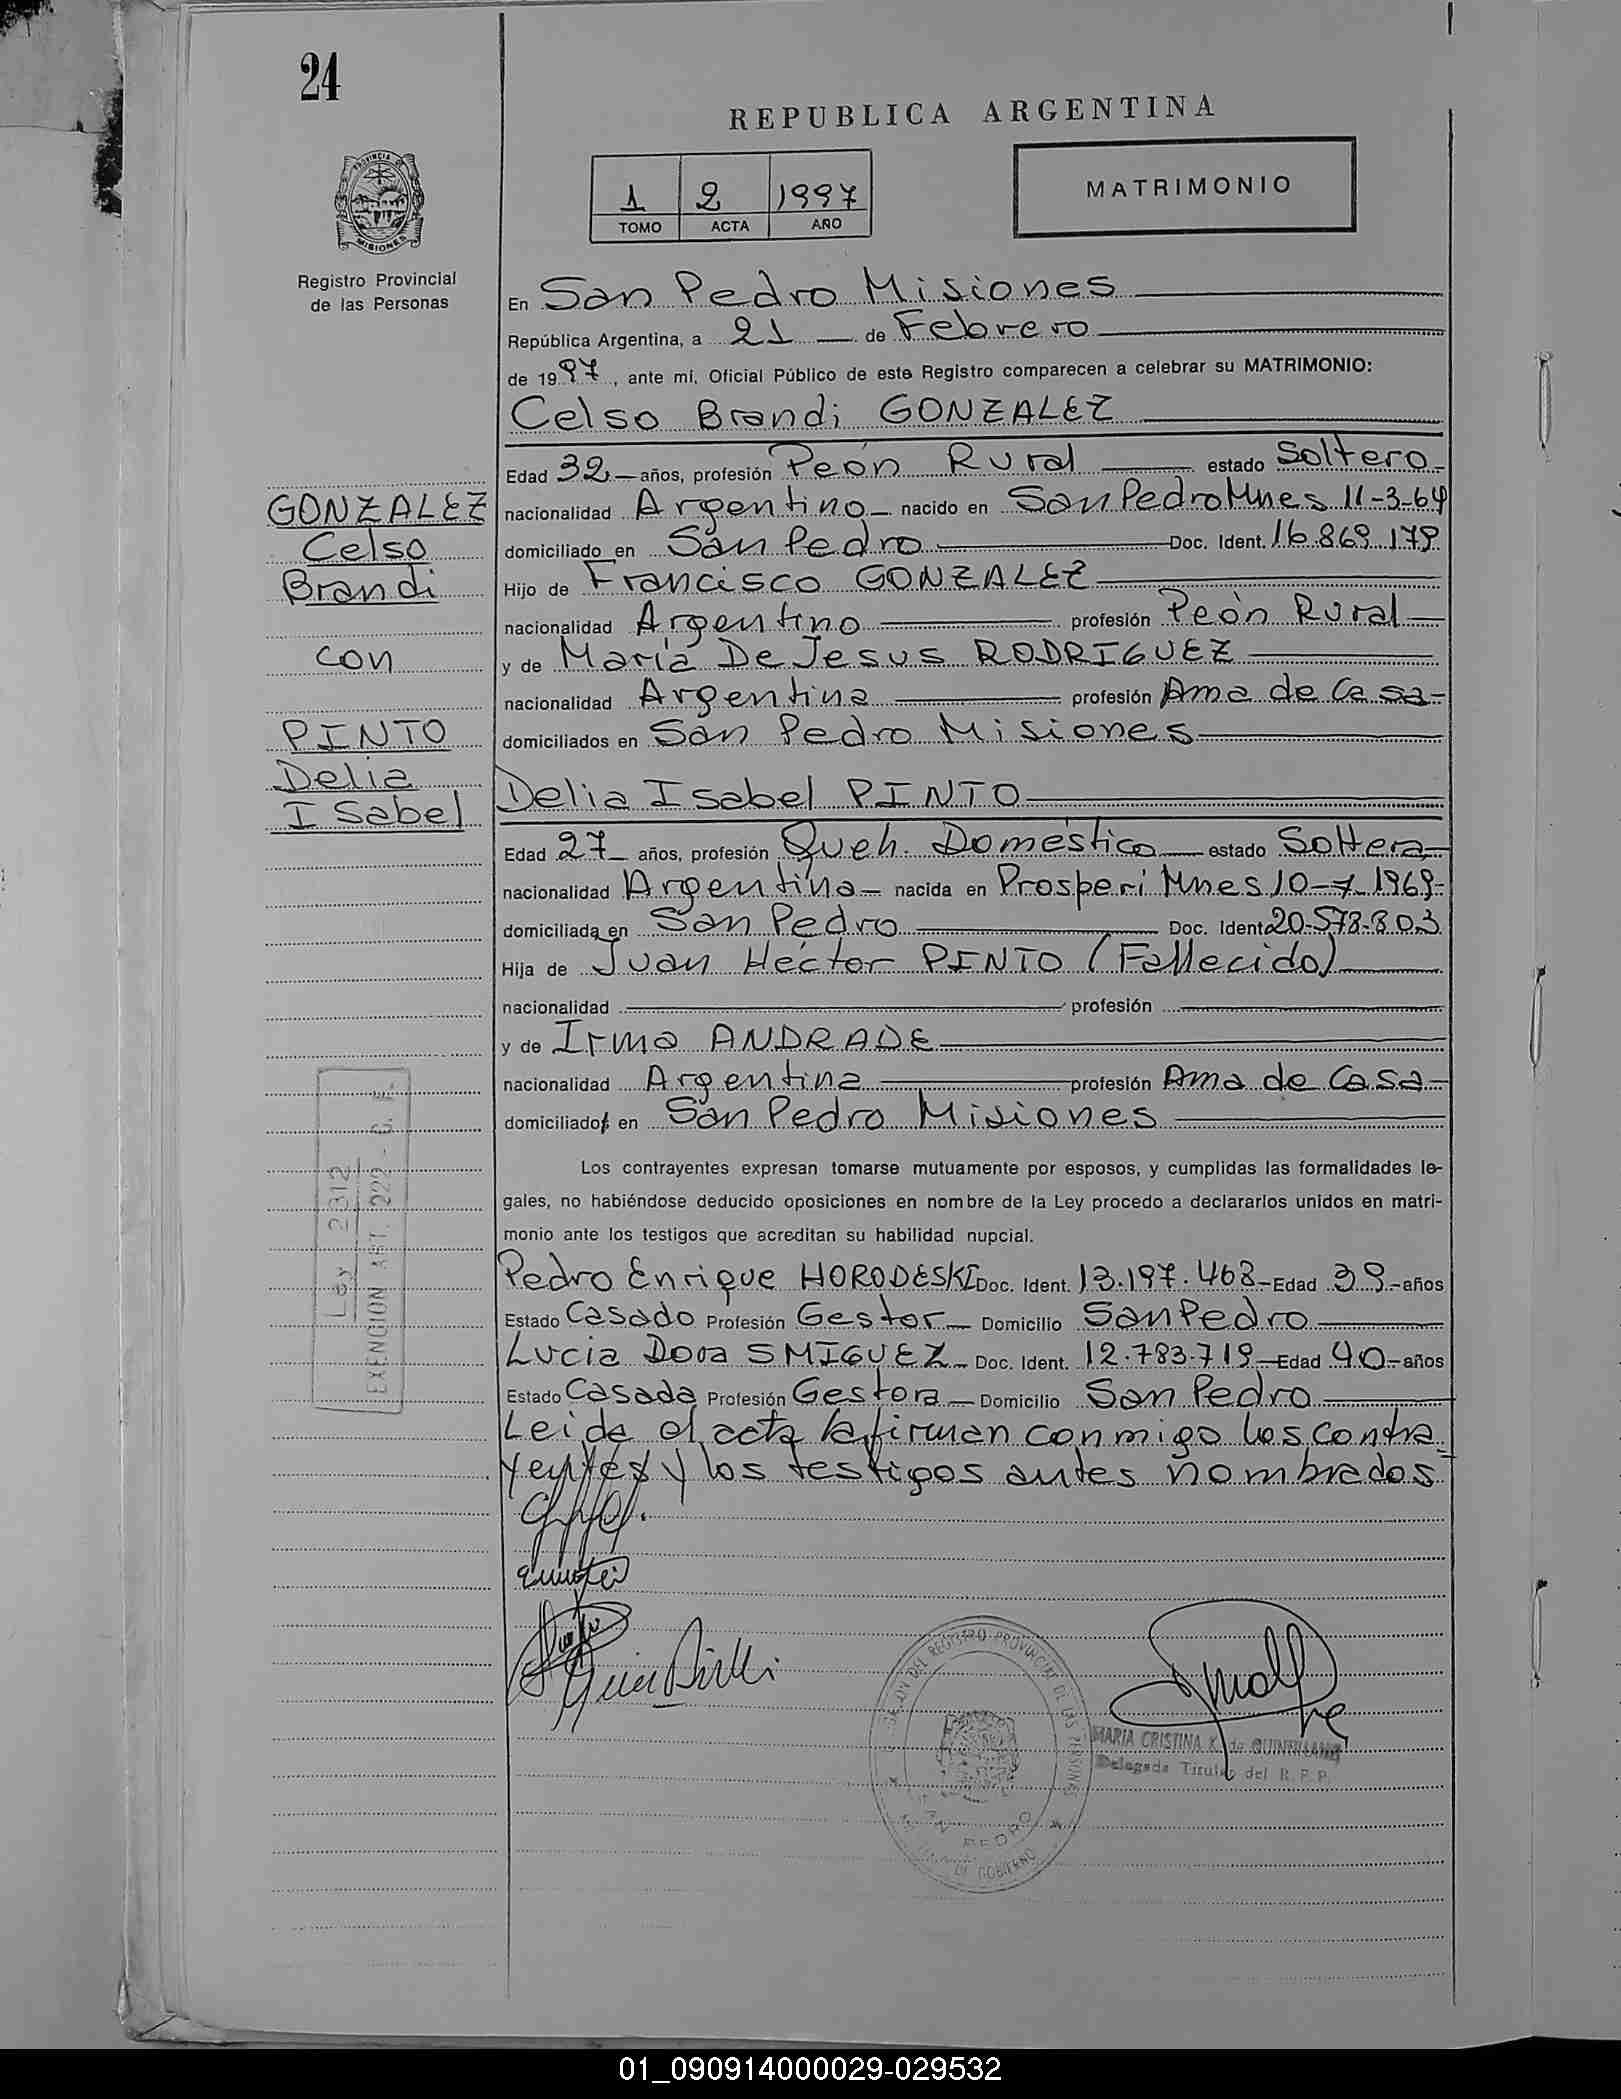 24
REPUBLICA ARGENTINA
PROVINCIA DE
MISIONES
Registro Provincial
de las Personas
1 2 1997
TOMO ACTA AÑO
MATRIMONIO
En San Pedro Misiones
República Argentina, a 21 de Febrero
de 1997, ante mí, Oficial Público de este Registro comparecen a celebrar su MATRIMONIO:
Celso Brandi GONZALEZ
Edad 32 años, profesión Peón Rural estado Soltero
nacionalidad Argentino nacido en San Pedro Mnes 11-3-64
domiciliado en San Pedro Doc. Ident. 16.869.179
Hijo de Francisco GONZALEZ
nacionalidad Argentino profesión Peón Rural
y de María De Jesus RODRIGUEZ
nacionalidad Argentina profesión Ama de Casa
domiciliados en San Pedro Misiones
GONZALEZ
Celso
Brandi
con
PINTO
Delia
Isabel
Delia Isabel PINTO
Edad 27 años, profesión Queh. Doméstico estado Soltera
nacionalidad Argentina nacida en Prosperi Mnes 10-7-1969
domiciliada en San Pedro Doc. Ident. 20-578-803
Hija de Juan Héctor PINTO (Fallecido)
nacionalidad profesión
y de Irma ANDRADE
nacionalidad Argentina profesión Ama de Casa
domiciliados en San Pedro Misiones
Los contrayentes expresan tomarse mutuamente por esposos, y cumplidas las formalidades le-
gales, no habiéndose deducido oposiciones en nombre de la Ley procedo a declararlos unidos en matri-
monio ante los testigos que acreditan su habilidad nupcial.
Pedro Enrique HORODESKI Doc. Ident. 13.197.468 Edad 39 años
Estado Casado Profesión Gestor Domicilio San Pedro
Lucia Dora SMIGUEZ Doc. Ident. 12.783.719 Edad 40 años
Estado Casada Profesión Gestora Domicilio San Pedro
Leida el acta la firman conmigo los contra-
yentes y los testigos antes nombrados
Ley 2312
EXENCION ART. 222 - C. F.
DEL REGISTRO PROVINCIAL DE LAS PERSONAS
SAN PEDRO
DE GOBIERNO
MARIA CRISTINA K. de QUINTILLANA
Delegada Titular del R. P. P.
01_090914000029-029532